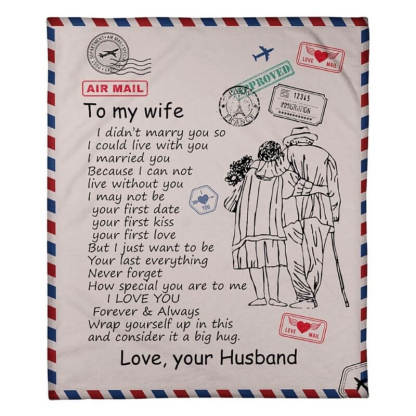 AIR MAIL
APPROVED
LOVE MAIL
12345
IMMIGRATION
To my wife
I didn't marry you so
I could live with you
I married you
Because I can not
live without you
I may not be
your first date
your first kiss
your first love
But I just want to be
Your last everything
Never forget
How special you are to me
I LOVE YOU
Forever & Always
Wrap yourself up in this
and consider it a big hug.
Love, your Husband
I
YOU
LOVE MAIL